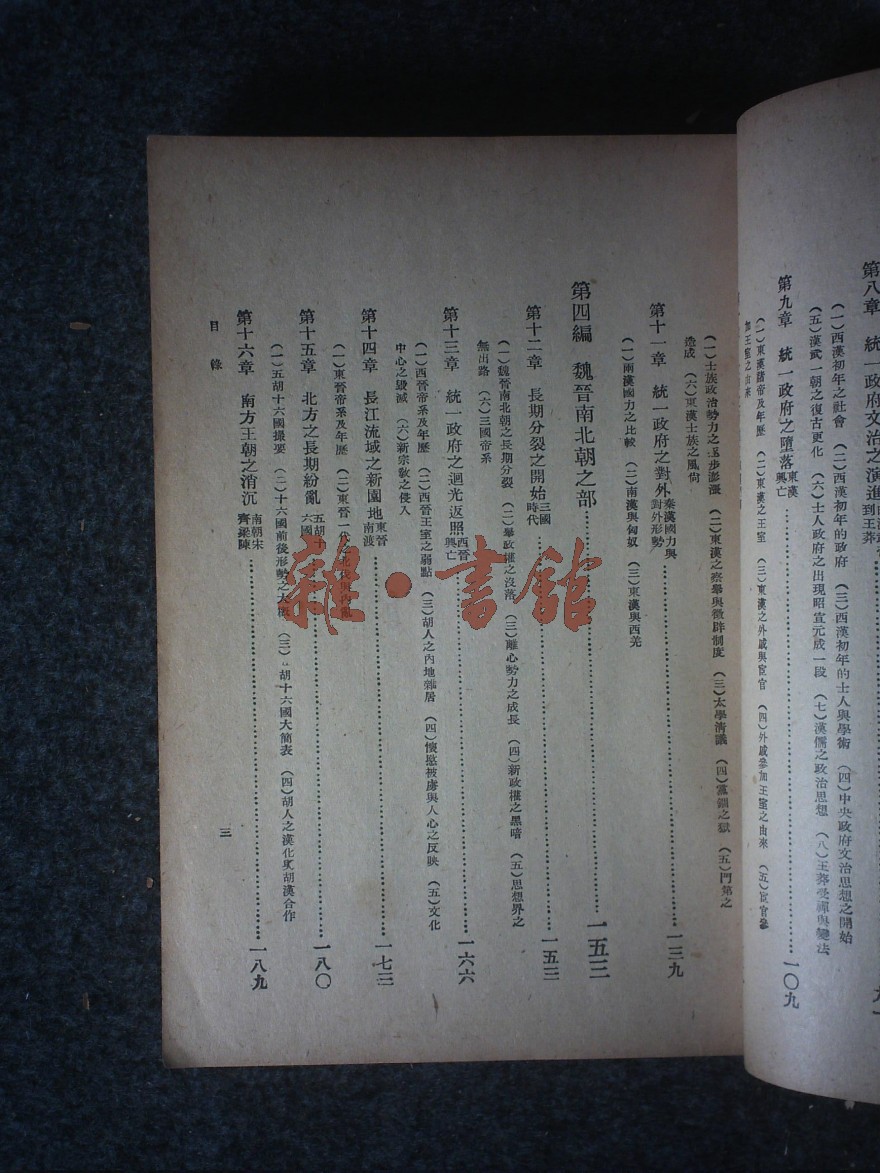 第八章 統一政府文治之演進
到王莽
(一)西漢初年之社會 (二)西漢初年的政府 (三)西漢初年的士人與學術 (四)中央政府文治思想之開始
(五)漢武一朝之復古更化 (六)士人政府之出現昭宣元成一段 (七)漢儒之政治思想 (八)王莽受禪與變法
第九章 統一政府之墮落 東漢興亡 一〇九
(一)東漢諸帝及年歷 (二)東漢之王室 (三)東漢之外戚與宦官 (四)外戚參加王室之由來 (五)宦官參
加王室之由來
(一)士族政治勢力之逐步澎漲 (二)東漢之察舉與徵辟制度 (三)太學清議 (四)黨錮之獄 (五)門第之
造成 (六)東漢士族之風尚
第十一章 統一政府之對外 秦漢國力與對外形勢 一三九
(一)兩漢國力之比較 (二)南漢與匈奴 (三)東漢與西羌
第四編 魏晉南北朝之部 一五三
第十二章 長期分裂之開始 三國時代 一五三
(一)魏晉南北朝之長期分裂 (二)舊政權之沒落 (三)離心勢力之成長 (四)新政權之黑暗 (五)思想界之
無出路 (六)三國帝系
第十三章 統一政府之迴光返照 西晉興亡 一六六
(一)西晉帝系及年歷 (二)西晉王室之弱點 (三)胡人之內地雜居 (四)懷愍被虜與人心之反映 (五)文化
中心之毀滅 (六)新宗教之侵入
第十四章 長江流域之新園地 東晉南渡 一七三
(一)東晉帝系及年歷 (二)東晉一代之北伐與內亂
第十五章 北方之長期紛亂 五胡十六國 一八〇
(一)五胡十六國撮要 (二)十六國前後形勢之大概 (三)胡十六國大簡表 (四)胡人之漢化與胡漢合作
第十六章 南方王朝之消沉 南朝宋齊梁陳 一八九
目錄
三
雜·書館